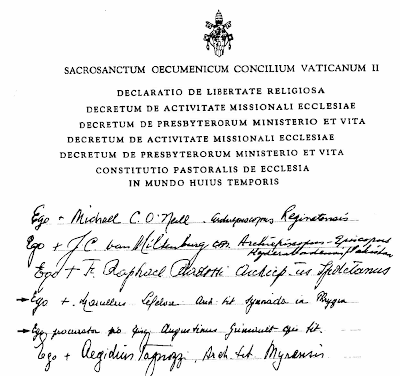 SACROSANCTUM OECUMENICUM CONCILIUM VATICANUM II
DECLARATIO DE LIBERTATE RELIGIOSA
DECRETUM DE ACTIVITATE MISSIONALI ECCLESIAE
DECRETUM DE PRESBYTERORUM MINISTERIO ET VITA
DECRETUM DE ACTIVITATE MISSIONALI ECCLESIAE
DECRETUM DE PRESBYTERORUM MINISTERIO ET VITA
CONSTITUTIO PASTORALIS DE ECCLESIA
IN MUNDO HUIUS TEMPORIS
Ego + Michael C. O'Neill Archiepiscopus Reginatensis
Ego + J.C. van Miltenburg ofm. Archiepiscopus-Episcopus
Hyderabadensis, Pakistan
Ego + F. Raphael Archiep. Spoletanus
Ego + Marcellus Lefebvre Arch. tit. Synnada in Phrygia
Ego procurator pro Augustinus Grimault epi. tit.
Ego + Aegidius Arch. tit. Myrensis